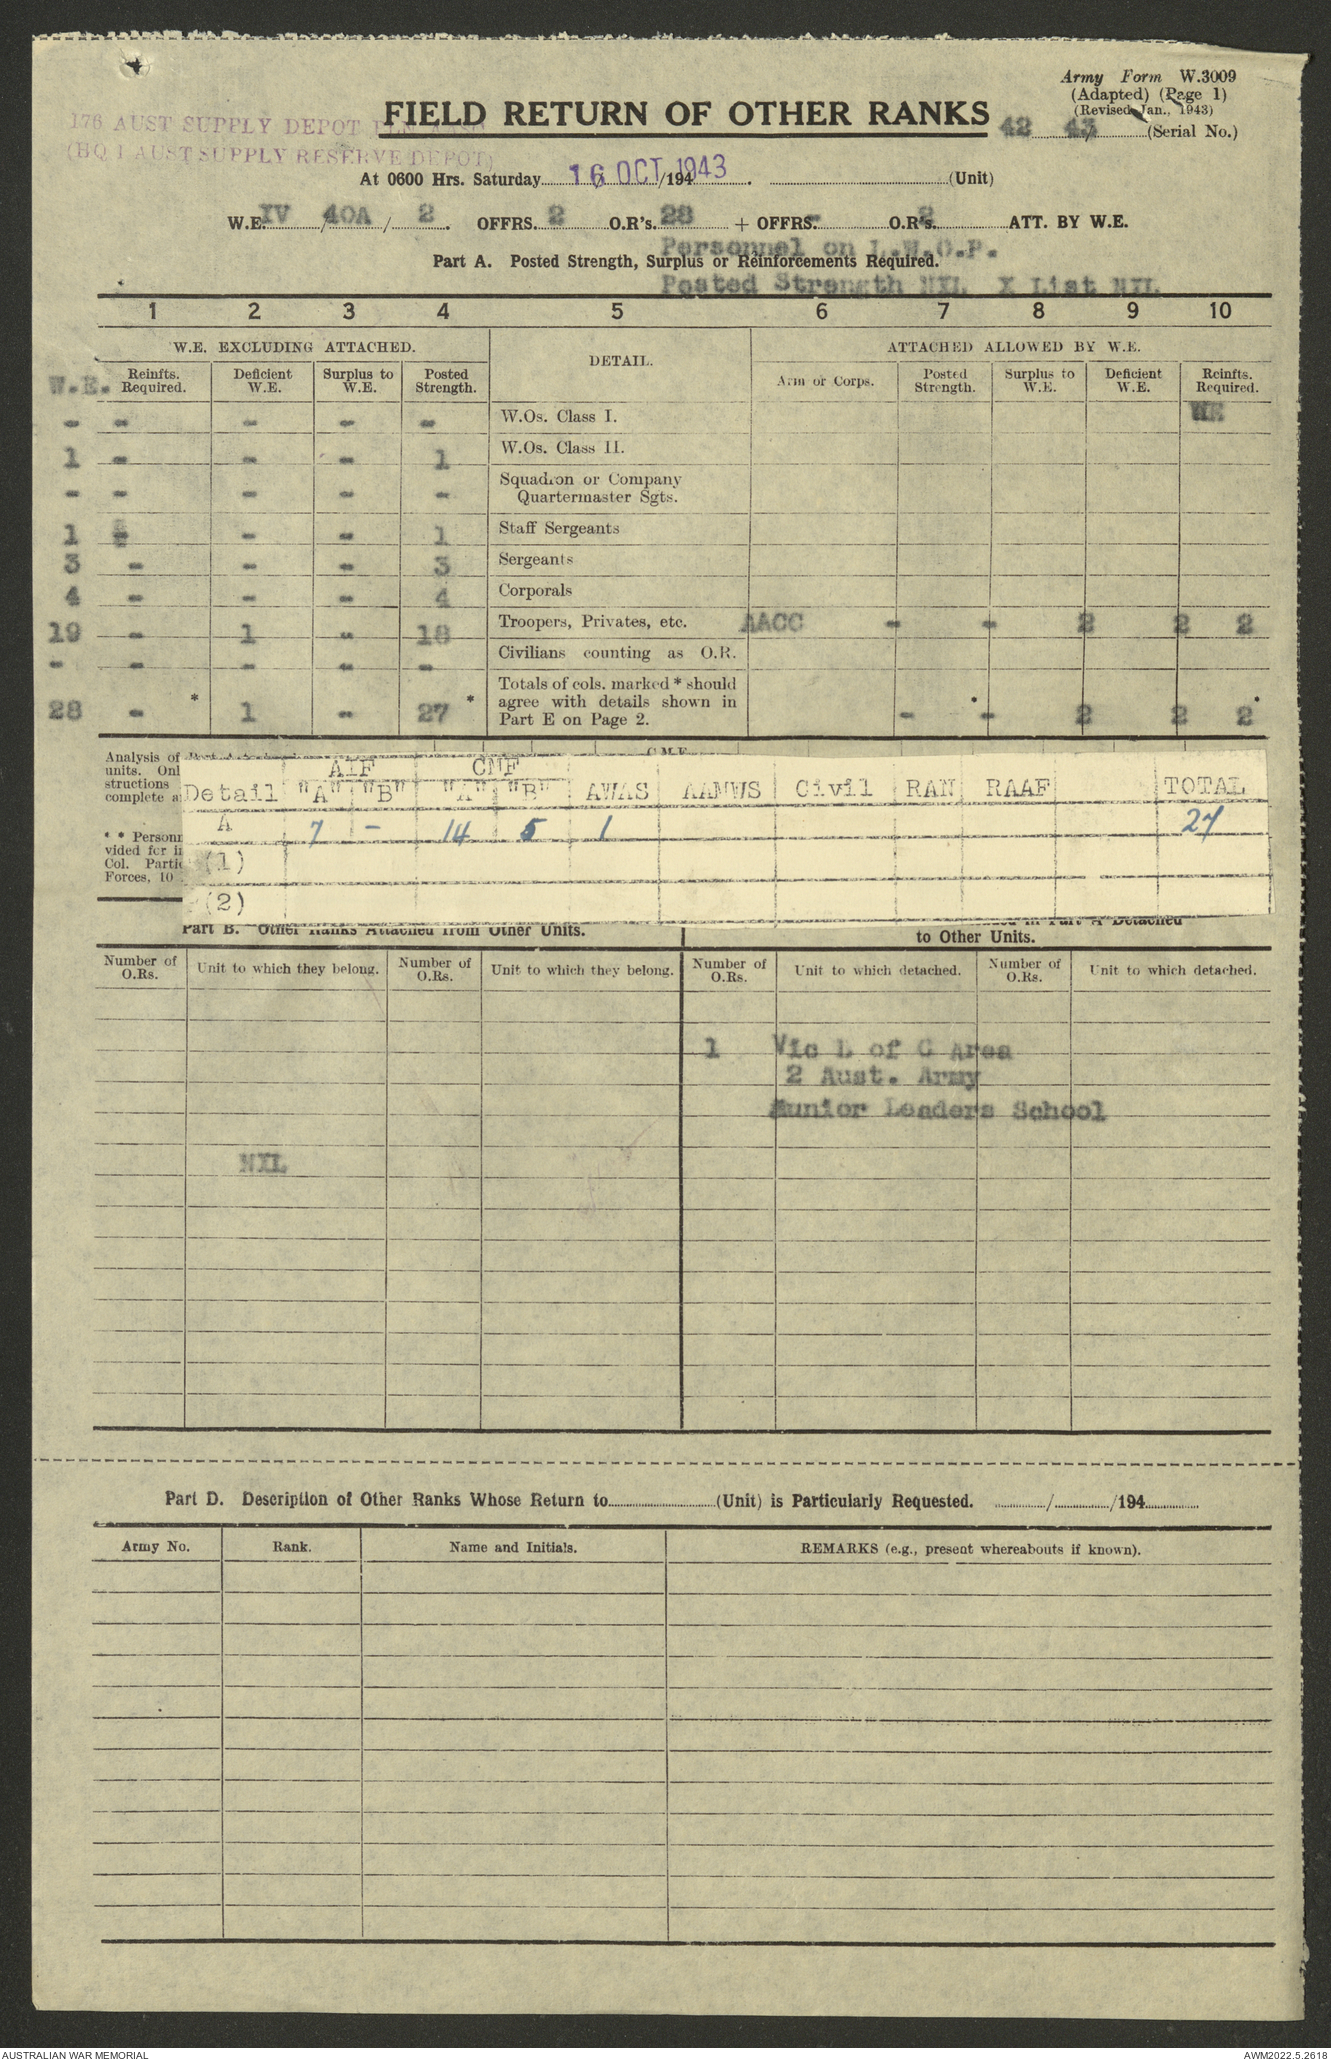 Army Form W.3009
(Adapted) (Page 1)
(Revised Jan., 1943)
FIELD RETURN OF OTHER RANKS
42 43 (Serial No.)
176 AUST SUPPLY DEPOT
(BQ 1 AUST SUPPLY RESERVE DEPOT)
At 0600 Hrs. Saturday 16 OCT 1943 /194 . (Unit)
W.E. IV / 40A / 2 . OFFRS. 2 O.R's. 28 + OFFRS. - O.R's. 2 ATT. BY W.E.
Personnel on L.W.O.P.
Part A. Posted Strength, Surplus or Reinforcements Required.
Posted Strength NIL X List NIL
1 2 3 4 5 6 7 8 9 10
W.E. EXCLUDING ATTACHED. DETAIL. ATTACHED ALLOWED BY W.E.
W.E. Reinfts. Required. Deficient W.E. Surplus to W.E. Posted Strength. Arm or Corps. Posted Strength. Surplus to W.E. Deficient W.E. Reinfts. Required.
WE
- - - - - W.Os. Class I.
1 - - - 1 W.Os. Class II.
- - - - - Squadron or Company
Quartermaster Sgts.
1 - - - 1 Staff Sergeants
3 - - - 3 Sergeants
4 - - - 4 Corporals
19 - 1 - 18 Troopers, Privates, etc. AACC - - 2 2 2
- - - - - Civilians counting as O.R.
Totals of cols. marked * should
28 - * 1 - 27 * agree with details shown in - - 2 2 2
Part E on Page 2.
Analysis of
units. Onl
structions
complete a
AIF CMF
Detail "A" "B" "A" "B" AWAS AAMWS Civil RAN RAAF TOTAL
A 7 - 14 5 1 27
(1)
(2)
* * Personn
vided for i
Col. Partic
Forces, 10
Part B. Other Ranks Attached from Other Units.
in Part A Detached
to Other Units.
Number of O.Rs. Unit to which they belong. Number of O.Rs. Unit to which they belong. Number of O.Rs. Unit to which detached. Number of O.Rs. Unit to which detached.
1 Vic L of C Area
2 Aust. Army
Junior Leaders School
NIL
Part D. Description of Other Ranks Whose Return to (Unit) is Particularly Requested. / /194
Army No. Rank. Name and Initials. REMARKS (e.g., present whereabouts if known).
AUSTRALIAN WAR MEMORIAL AWM2022.5.2618